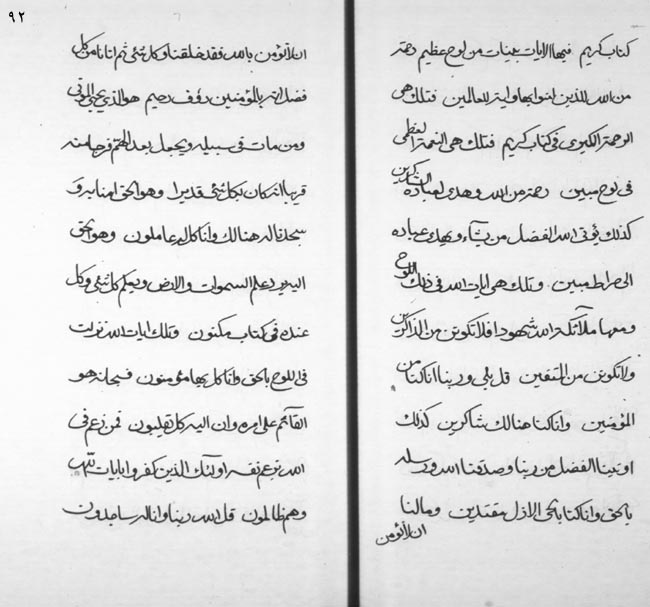 كتاب كريم فيها الايات بينات من لوح عظيم رحمة
من الله للذين امنوا بها واية للعالمين فتلك هى
الرحمة الكبرى فى كتاب كريم فتلك هى النعمة العظمى
فى لوح مبين رحمة من الله وهدى لعباده الشاكرين
كذلك يؤتى الله الفضل من يشاء ويهدى عباده
الى صراط مبين وتلك هى ايات الله فى ذلك اللوح
ومعها ملآئكة الله شهودا فلا تكونن من الذاكرين
ولا تكونن من المتقين قل بلى وربنا انا كنا من
المؤمنين وانا كنا هنالك شاكرين كذلك
اوتينا الفضل من ربنا وصدقنا الله ورسله
بالحق وانا كنا بالحق الاول مقتدين ومالنا
ان لا نؤمن
٩٢
ان لا نؤمن بالله فقد خلقنا وكل شئ ثم اتانا من كل
فضل انه بالمؤمنين رؤف رحيم هو الذي يحيى الموتى
ومن مات فى سبيله ويجعل بعد الهم فرجا منه
قريبا انه كان بكل شئ قديرا وهو الحق امنا به و
سجدنا له هنالك وانا كل له عاملون وهو الحق
اليه يرد علم السموات والارض ويعلم كل شئ وكل
عنده فى كتاب مكنون وتلك ايات الله نزلت
فى اللوح بالحق وانا كل بها مؤمنون فسبحانه هو
القآئم على امره وان اليه كل تقلبون فمن زعم فى
الله بزعم نفسه اولئك الذين كفروا بايات الله
وهم ظالمون قل الله ربنا وانا له ساجدون